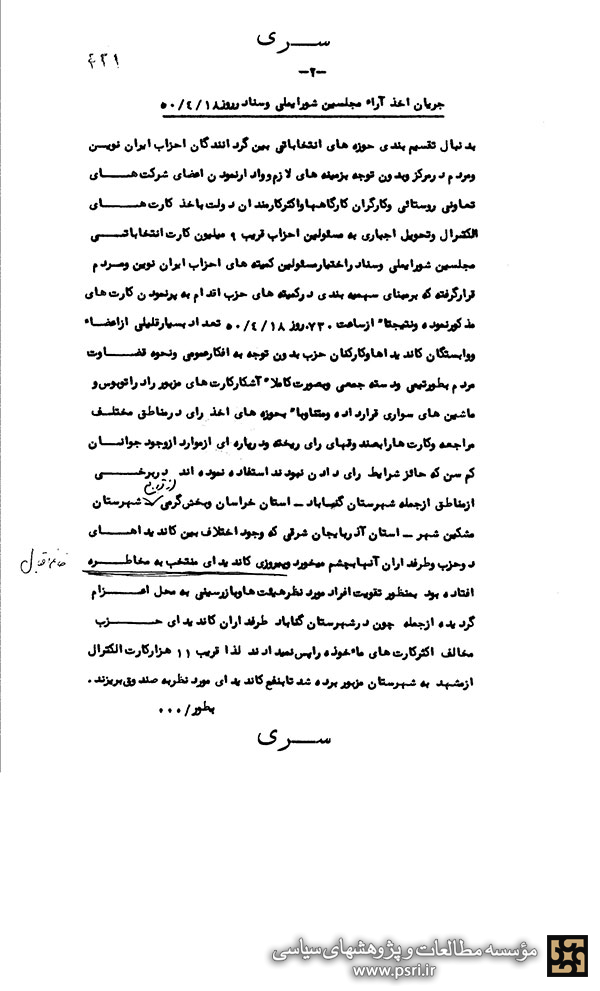 سری
۴۳۹
-۲-
جریان اخذ آراء مجلسین شورایملی وسناد رروز ۵۰/۴/۱۸
بدنبال تقسیم بندی حوزه های انتخاباتی بین گردانندگان احزاب ایران نویسن
ومردم درمرکز وبدون توجه بزمینه های لازم ووادارنمودن اعضای شرکت هـــای
تعاونی روستائی وکارگران کارگاههاواکثرکارمندان دولت باخذ کارت هـــای
الکترال وتحویل اجباری به مسئولین احزاب قریب ۹ میلیون کارت انتخاباتـــی
مجلسین شورایملی وسناد راختیارمسئولین کمیته های احزاب ایران نوین ومـردم
قرارگرفته که برمبنای سهمیه بندی درکمیته های حزب اقدام به پرنمودن کارت های
مذکورنموده ونتیجتاً ازساعت ۷۳۰ روز ۵۰/۴/۱۸ تعداد بسیارقلیلی ازاعضاء
ووابستگان کاندیداهاوکارکنان حزب بدون توجه به افکارعمومی ونحوه قضـاوت
مردم بطورتیمی ودسته جمعی وبصورت کاملاً آشکارکارت های مزبور راد راتوبوس و
ماشین های سواری قرارداده ومتناوباً بحوزه های اخذ رای درمناطق مختلـف
مراجعه وکارت هارابصندوقهای رای ریخته ودرپاره ای ازموارد ازوجود جوانـان
کم سن که حائز شرایط رای دادن نبودند استفاده نموده اند دربرخـــی
ازمناطق ازجمله شهرستان گنبـاباد ـ استان خراسان وبخش گرمی ـ شهرستان
از توابع
مشکین شهر ـ استان آذربایجان شرقی که وجود اختلاف بین کاندیداهـــای
دوحزب وطرفداران آنهابچشم میخورد وپیروزی کاندیدای منتخب به مخاطـــره
افتاده بود بمنظور تقویت افراد مورد نظرهیئت هاوبازرسینی به محل اعـــزام
گردیده ازجمله چون درشهرستان گناباد طرفداران کاندیدای حـــزب
مخالف اکثرکارت های ماخوذه راپس نمیدادند لذا قریب ۱۱ هزارکارت الکترال
ازمشهد به شهرستان مزبور برده شد تابنفع کاندیدای مورد نظربه صندوق بریزند.
بطور/...
سری
مؤسسه مطالعات و پژوهشهای سیاسی
www.psri.ir